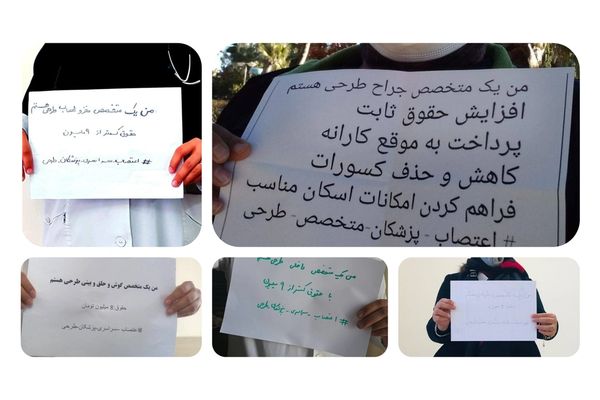 من یک متخصص مغز و اعصاب طرحی هستم
حقوق کمتر از ۹ میلیون
# اعتصاب_سراسری_پزشکان_طرحی
من یک متخصص جراح طرحی هستم
افزایش حقوق ثابت
پرداخت به موقع کارانه
کاهش و حذف کسورات
فراهم کردن امکانات اسکان مناسب
# اعتصاب - پزشکان-متخصص- طرحی
من یک متخصص گوش و حلق و بینی طرحی هستم
حقوق 8 میلیون تومان
#اعتصاب_سراسری_پزشکان_طرحی
من یک متخصص داخلی طرحی هستم
با حقوق کمتر از ۹ میلیون
# اعتصاب_سراسری_پزشکان_طرحی